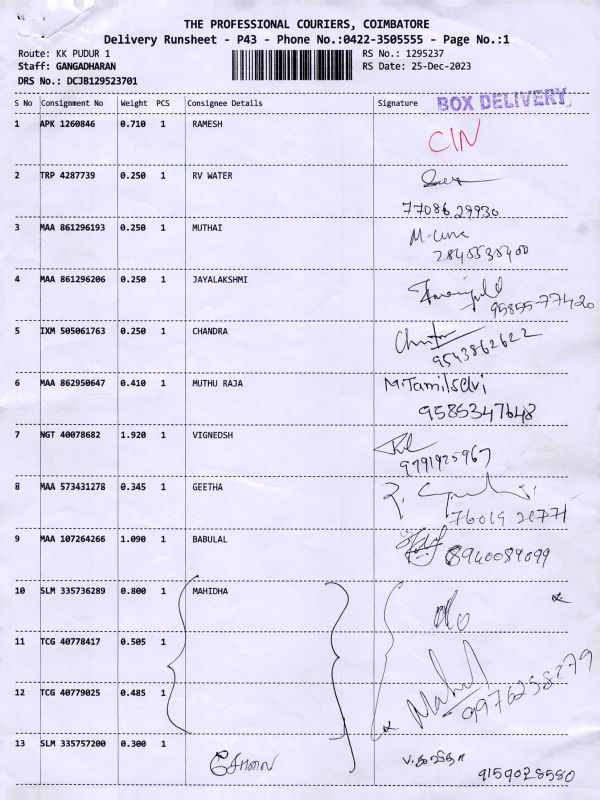 THE PROFESSIONAL COURIERS, COIMBATORE
Delivery Runsheet - P43 - Phone No.:0422-3505555 - Page No.:1
Route: KK PUDUR 1 RS No.: 1295237
Staff: GANGADHARAN RS Date: 25-Dec-2023
DRS No.: DCJB129523701
BOX DELIVERY
S No Consignment No Weight PCS Consignee Details Signature
1 APK 1260846 0.710 1 RAMESH CIN
2 TRP 4287739 0.250 1 RV WATER
7708629930
3 MAA 861296193 0.250 1 MUTHAI
4 MAA 861296206 0.250 1 JAYALAKSHMI
9585577420
5 IXM 505061763 0.250 1 CHANDRA
9543862622
6 MAA 862950647 0.410 1 MUTHU RAJA M.Tamilselvi
9585347648
7 NGT 40078682 1.920 1 VIGNEDSH
9791925967
8 MAA 573431278 0.345 1 GEETHA
9 MAA 107264266 1.090 1 BABULAL
8940089099
10 SLM 335736289 0.800 1 MAHIDHA
11 TCG 40778417 0.505 1
12 TCG 40779025 0.485 1
9976258279
13 SLM 335757200 0.300 1
9159028580